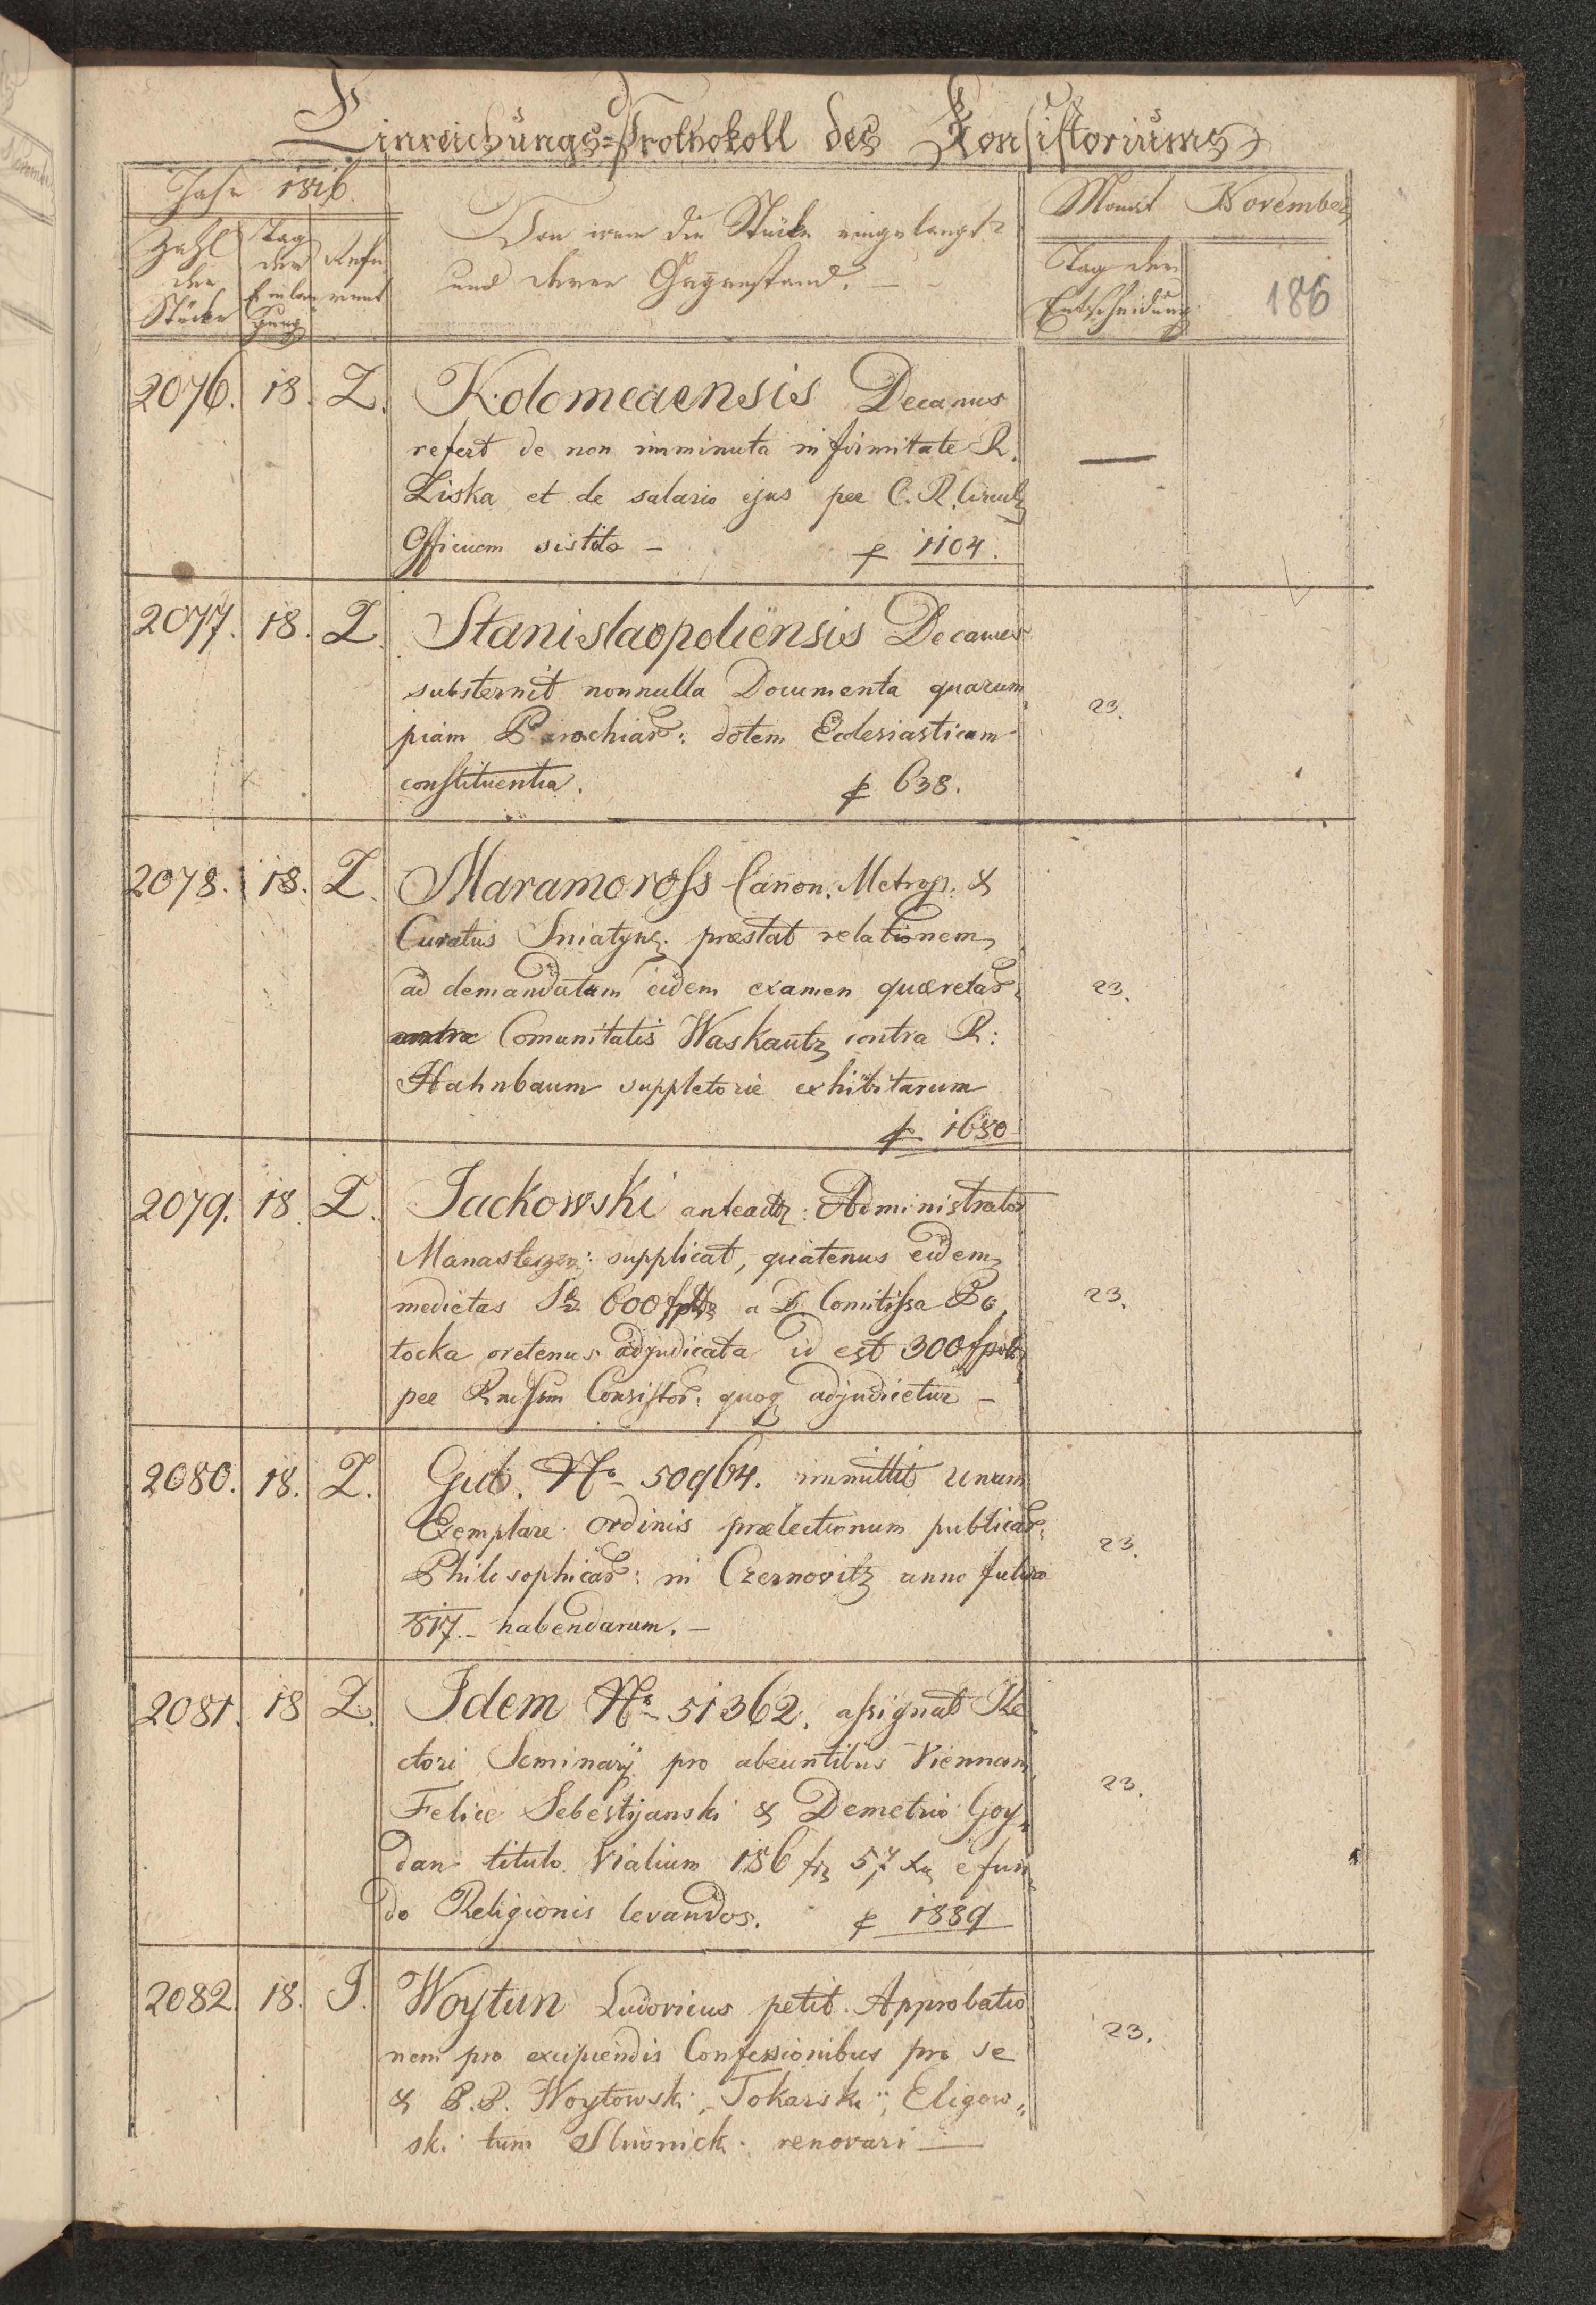 Einreichungs=Prothokoll des Konsistoriums
Jahr 1816.
Zahl der Stücke
Tag der Einlangung
Referent
Von wem die Stücke eingelangt?
und deren Gegenstand. –
Monat November
Tag der Entscheidung
186
2076. 18. Z. Kolomeaensis Decanus
refert de non imminuta infirmitate R.
Liska et de salario ejus per C. R. Circul
Officium sistito – p 1104.
2077. 18. Z. Stanislaopoliensis Decanus
substernit nonnulla Documenta quarum
piam Parochiar: dotem Ecclesiasticam
constituentia. p 638. 23.
2078. 18. Z. Maramoross Canon. Metrop. &
Curatus Sniatyn. praestat relationem
ad demandatum eidem examen quaerelar.
Comunitatis Waskautz contra R:
Hahnbaum suppletorie exhibitarum 23.
p 1650
2079. 18. Z. Jackowski anteact: Administrator
Manasterzen: supplicat, quatenus eidem
medietas 600 a D. Comitissa Po,
tocka oretenus adjudicata id est 300
per Rndssum Consistor. quoq adjudicetur – 23.
2080. 18. Z. Gub. No 50964. immittit unum
Exemplare ordinis praelectionum publicar.
Philosophicar: in Czernovitz anno futuro
817. – habendarum. – 23.
2081. 18 Z. Idem No 51362. assignat Re,
ctori Seminarij pro abeuntibus Viennam
Felice Sebestijanski & Demetrio Goy,,
dan titulo Vialium 186 fr 57 Xr e fun,
do Religionis levandos. p 1889 23.
2082. 18. J. Woytun Ludovicus petit Approbatio
nem pro excipiendis Confessionibus pro se
& P.P. Woytowski, Tokarski, Eligow,,
ski tum renovari — 23.